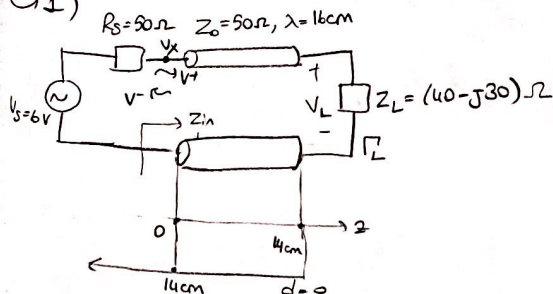 Q1)
Rs=50Ω Z₀=50Ω, λ=16cm
Vx
V+
V-
Vs=6V
+
VL
-
ZL=(40-J30)Ω
Zin
ΓL
0
14cm
z
14cm
d=0